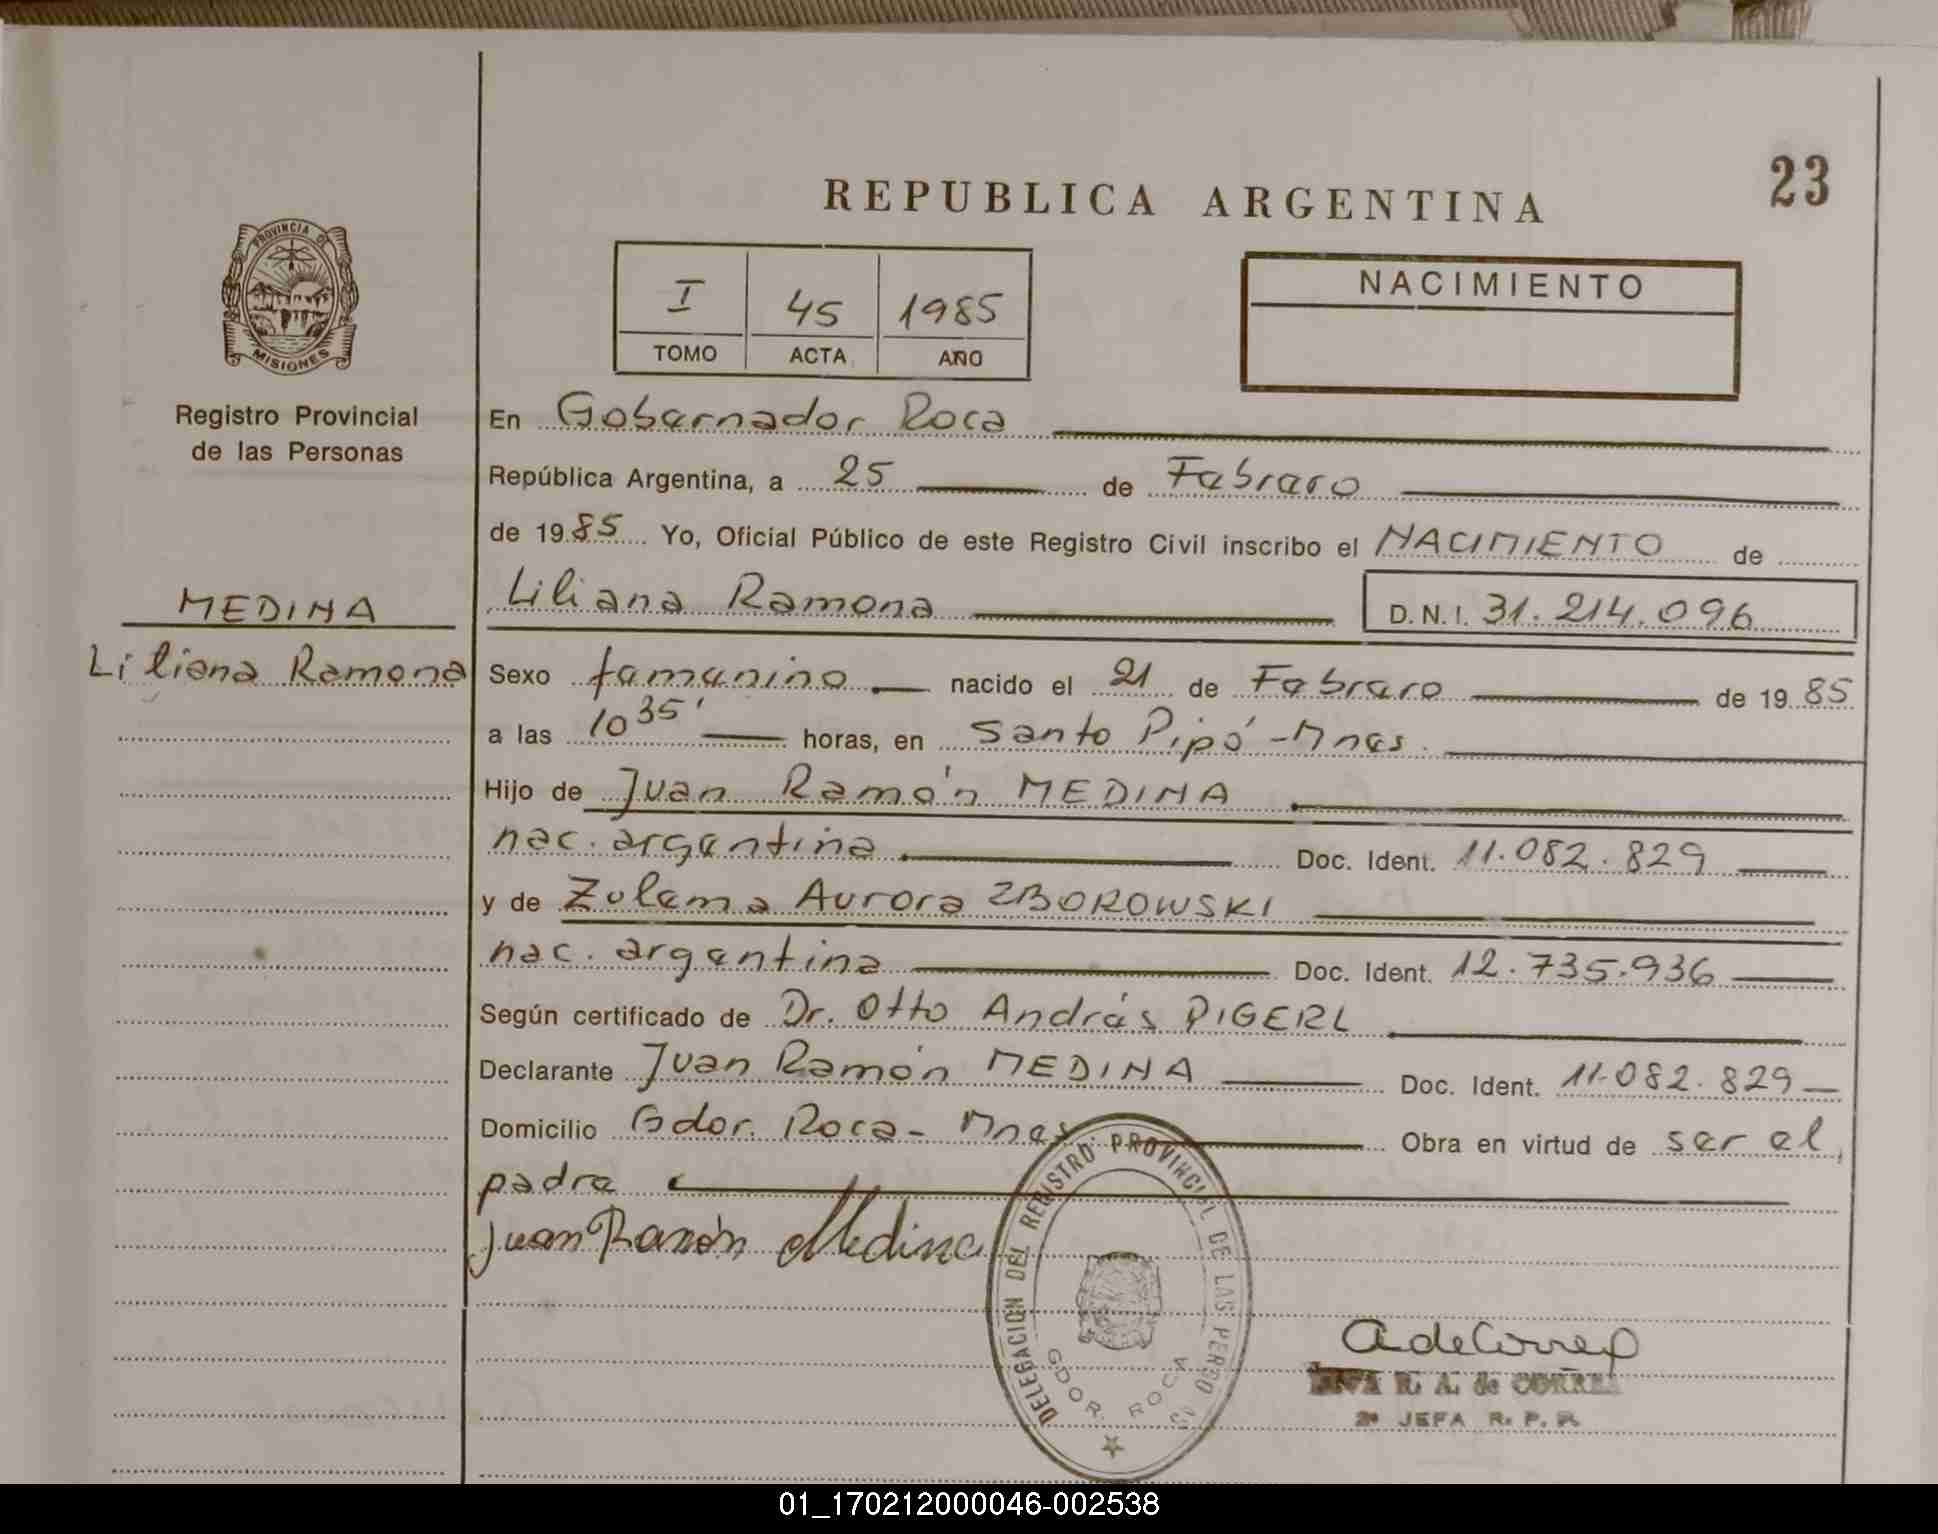 23
REPUBLICA ARGENTINA
PROVINCIA DE
MISIONES
Registro Provincial
de las Personas
I 45 1985
TOMO ACTA AÑO
NACIMIENTO
En Gobernador Roca
República Argentina, a 25 de Febrero
de 1985 Yo, Oficial Público de este Registro Civil inscribo el NACIMIENTO de
MEDINA
Liliana Ramona
Liliana Ramona D.N.I. 31.214.096
Sexo femenino nacido el 21 de Febrero de 1985
a las 10 35' horas, en Santo Pipó - Mnes.
Hijo de Juan Ramón MEDINA
nac. argentina Doc. Ident. 11.082.829
y de Zulema Aurora ZBOROWSKI
nac. argentina Doc. Ident. 12.735.936
Según certificado de Dr. Otto Andrés PIGERL
Declarante Juan Ramón MEDINA Doc. Ident. 11.082.829
Domicilio Gdor. Roca - Mnes Obra en virtud de ser el
padre
Juan Ramón Medina
DELEGACION DEL REGISTRO PROVINCIAL DE LAS PERSONAS
GDOR. ROCA
R. A. de CORREA
2ª JEFA R. P. P.
01_170212000046-002538